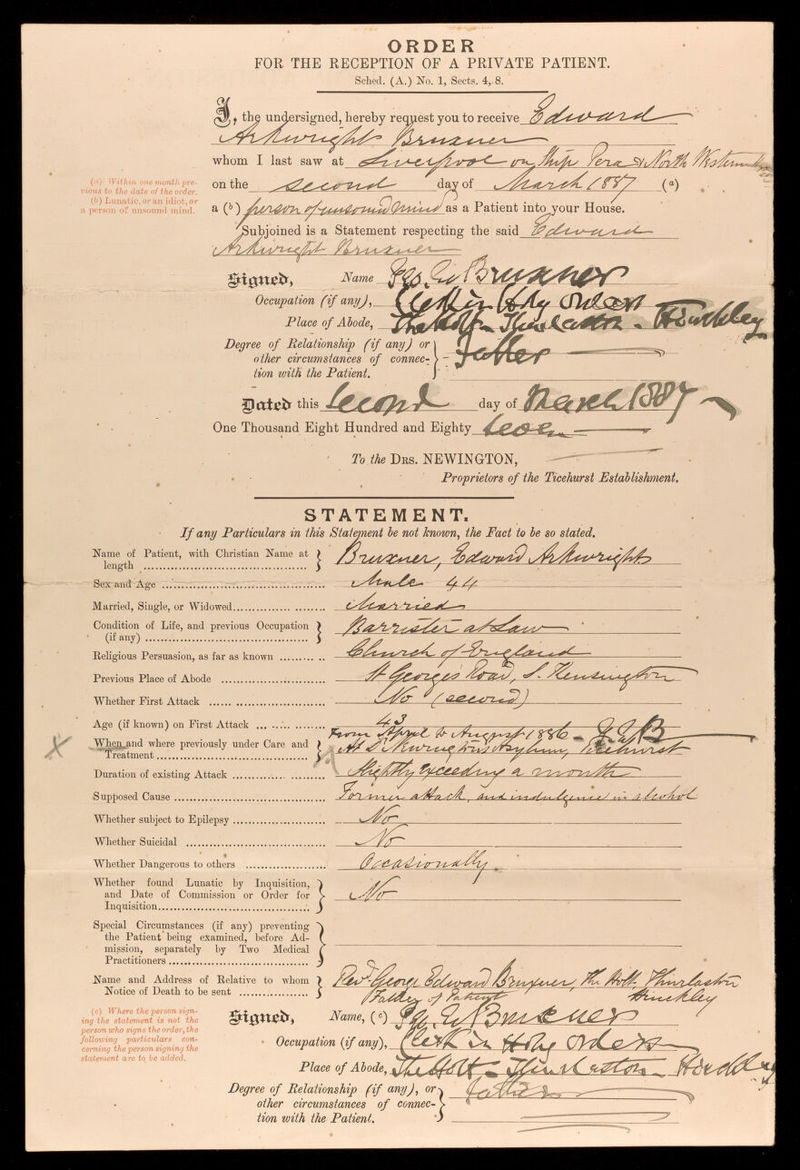 ORDER
FOR THE RECEPTION OF A PRIVATE PATIENT.
Sched. (A.) No. 1, Sects. 4, 8.
I, the undersigned, hereby request you to receive Edward
Arkwright Bruxner
whom I last saw at Liverpool on Ship Pera & North Western
(a) Within one month pre-
vious to the date of the order.
(b) Lunatic, or an idiot, or
a person of unsound mind.
on the second day of March 1887 (a)
a (b) person of unsound mind as a Patient into your House.
Subjoined is a Statement respecting the said Edward
Arkwright Bruxner
Signed, Name Geo. E. Bruxner
Occupation (if any), Clerk in Holy Orders
Place of Abode, The Holt - Thurlaston - Hinckley
Degree of Relationship (if any) or
other circumstances of connec-
tion with the Patient.
Father
Dated this Second day of March 1887
One Thousand Eight Hundred and Eighty Seven
To the DRS. NEWINGTON,
Proprietors of the Ticehurst Establishment.
STATEMENT.
If any Particulars in this Statement be not known, the Fact to be so stated.
Name of Patient, with Christian Name at
length Bruxner, Edward Arkwright
Sex and Age Male 44
Married, Single, or Widowed Married
Condition of Life, and previous Occupation
(if any) Barrister at Law
Religious Persuasion, as far as known Church of England
Previous Place of Abode St Georges Road, S. Kensington
Whether First Attack No (second)
Age (if known) on First Attack 43
From April to August 1886 - G E B
X When and where previously under Care and
Treatment At Dr Newington's Asylum, Ticehurst
Duration of existing Attack Slightly exceeding a month
Supposed Cause Former attack, and indulgence in alcohol
Whether subject to Epilepsy No
Whether Suicidal No
Whether Dangerous to others Occasionally.
Whether found Lunatic by Inquisition,
and Date of Commission or Order for
Inquisition No
Special Circumstances (if any) preventing
the Patient being examined, before Ad-
mission, separately by Two Medical
Practitioners
Name and Address of Relative to whom
Notice of Death to be sent Revd George Edward Bruxner, The Holt, Thurlaston
Father of Patient Hinckley
(c) Where the person sign-
ing the statement is not the
person who signs the order, the
following particulars con-
cerning the person signing the
statement are to be added.
Signed, Name, (c) Geo. E. Bruxner
Occupation (if any), Clerk in Holy Orders
Place of Abode, The Holt - Thurlaston - Hinckley
Degree of Relationship (if any), or
other circumstances of connec-
tion with the Patient.
Father